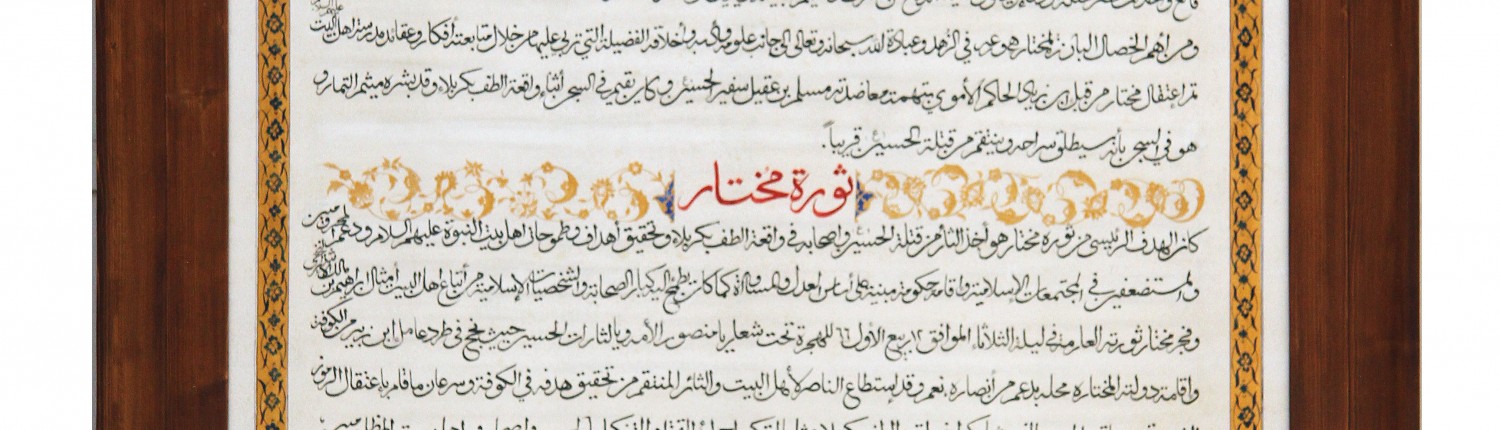 ومن أهم الخصال البارزة لمختار هو عرف في الزهد وعبادة الله سبحانه وتعالى إلى جانب علومه وأدبه وأخلاقه الفضيلة التي تربى عليها من خلال متابعته أفكار وعقائد مدرسة اهل البيت
تم إعتقال مختار من قبل ابن زياد الحاكم الأموي بتهمة معاضدته مسلم بن عقيل سفير الحسين و كان يقيم في السجن أثناء واقعة الطف بكربلاء وقد بشره ميثم التمار و
هو في السجن بأنه سيطلق سراحه وينتقم من قتلة الحسين قريباً.
ثورة مختار
كان الهدف الرئيسي من ثورة مختار هو أخذ الثأر من قتلة الحسين وأصحابه في واقعة الطف بكربلاء وتحقيق أهداف وطموحات اهل بيت النبوة عليهم السلام ودعم المحرومين
والمستضعفين في المجتمعات الإسلامية وإقامة حكومة مبنية على أساس العدل والمساواة كما كان يطمح إليه كبار الصحابة والشخصيات الإسلامية من أتباع اهل البيت أمثال ابراهيم بن مالك الأشتر
وفجر مختار ثورته العارمة في ليلة الثلاثاء الموافق ١٢ ربيع الأول ٦٦ للهجرة تحت شعار يا منصور الأمد ويالثارات الحسين حيث نجح في طرد عامل ابن زبير من الكوفة
واقامة دولته المختارة محله بدعم من أنصاره نعم وقد إستطاع الناصر لأهل البيت والثائر المنتقم من تحقيق هدفه في الكوفة وسرعان ما قام بإعتقال الرموز